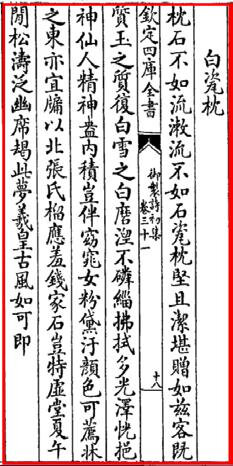 白瓷枕
枕石不如流漱流不如石瓷枕堅且潔堪贈如兹客既
欽定四庫全書
御製詩初集
卷三十一
十八
質玉之質復白雪之白磨涅不磷緇拂拭多光澤恍挹
神仙人精神葢内積豈伴窈窕女粉黛汙顔色可薦牀
之東亦宜牖以北張氏榴應羞錢家石豈特虛堂夏午
閒松濤泛幽席曷此夢羲皇古風如可即